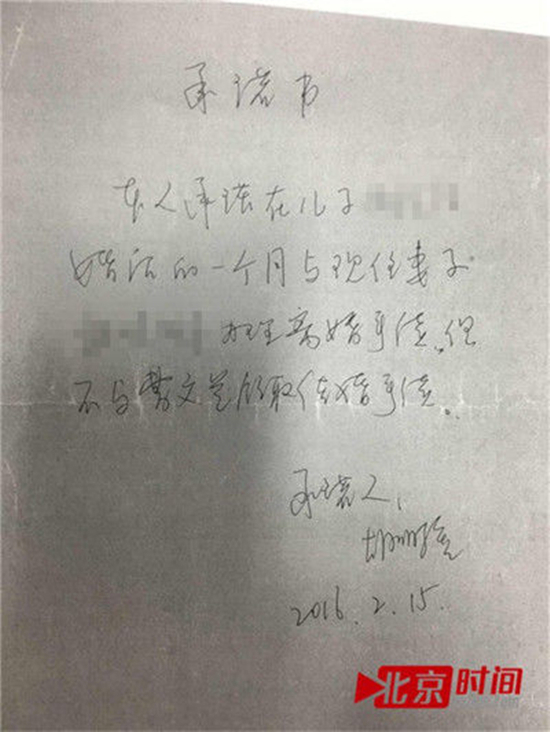 承诺书
本人承诺在儿子
婚后的一个月与现任妻子
办理离婚手续。但
不与曹文兰领取结婚手续。
承诺人:
2016.2.15.
北京时间